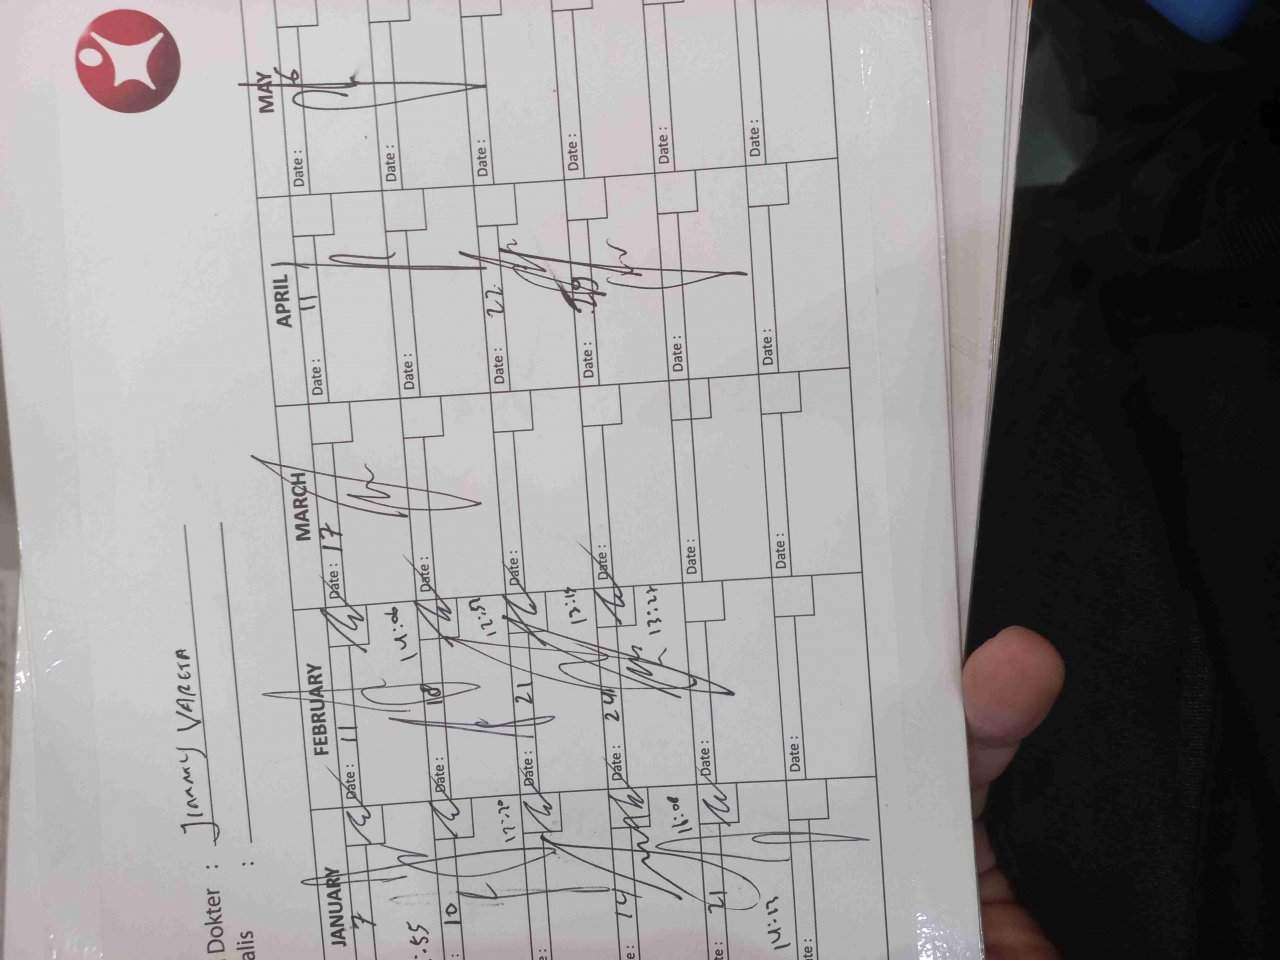 Dokter : JIMMY VARETA
alis :
JANUARY FEBRUARY MARCH APRIL MAY
7 Date : 11 Date : 17 Date : 11 Date : 6
:55 14:06
10 Date : 18 Date : Date : Date :
12:20 12:52
Date : 21 Date : Date : 22 Date :
13:14
14 Date : 24 Date : Date : 29 Date :
11:08 13:27
21 Date : Date : Date : Date :
14:13
Date : Date : Date : Date : Date :